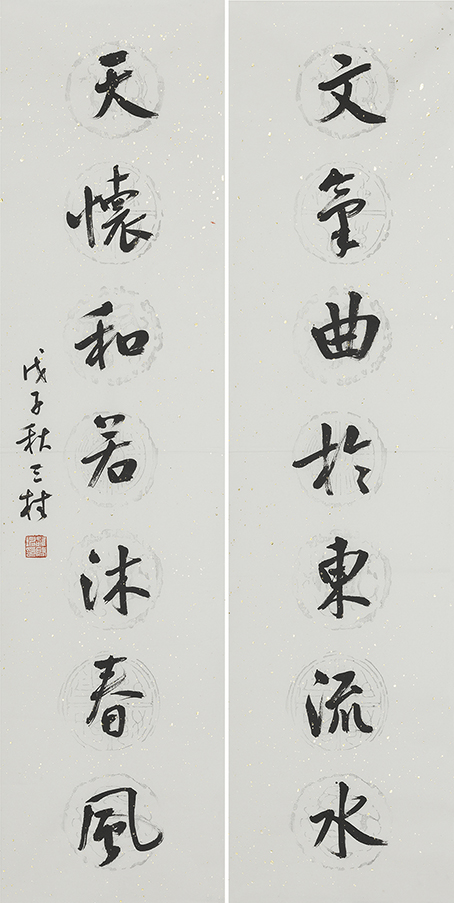 文氣曲於東流水
天懷和若沐春風
戊子秋三村